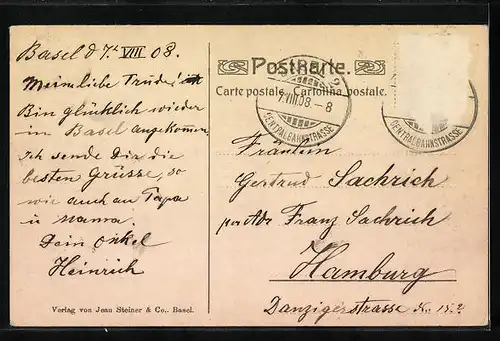 Basel d 7t VIII 08.
Mein liebe Trude!
Bin glücklich wieder
in Basel angekommen
Ich sende Dir die
besten Grüsse, so
wie auch an Papa
u Mama.
Dein Onkel
Heinrich
Verlag von Jean Steiner & Co., Basel.
Postkarte.
Carte postale. Cartolina postale.
7.VIII.08 – 8
CENTRALBAHNSTRASSE
CENTRALBAHNSTRASSE
Fräulein
Gertrud Sachrich
per Adr Franz Sachrich
Hamburg
Danzigerstrasse N. 15.2